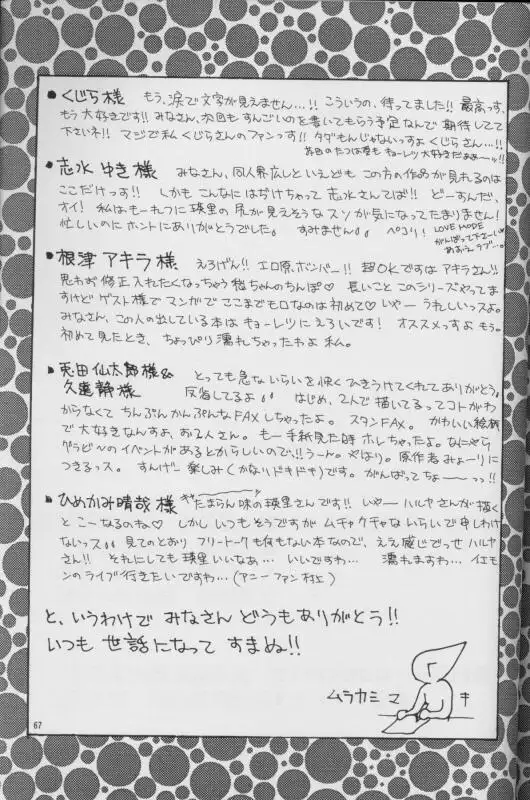 •くじら様 もう、涙で文字が見えません…!! こういうの、待ってました!! 最高っす、
もう大好きです!! みなさん、次回もすんごいのを書いてもらう予定なんで 期待してて
下さいネ!! マジで私くじらさんのファンっす!! タダもんじゃないっすよ くじらさん…!!
キョーレツ大好きだぁぁーッ!!
•志水ゆき様 みなさん、同人界広しといえども この方の作品が見れるのは
ここだけっす!! しかも こんなにはぢけちゃって 志水さんてば!! どーすんだ、
オイ! 私はもーれつに 瑛里の尻が見えそうなスソが気になってたまりません!
忙しいのに ホントにありがとうでした。 すみません ペコリ!
LOVE MODE
がんばって下さい
•根津アキラ様 えろげん!! エロ原、ボンバー!! 超OKですは アキラさん!!
思わず修正入れたくなっちゃう 稔ちゃんのちんぽ♡ 長いこと このシリーズやってま
すけど ゲスト様で マンガで ここまでモロなのは 初めて♡ いやー うれしいっスよ。
みなさん、この人の出している本は キョーレツに えろいです! オススメっすよ もう。
初めて見たとき、ちょっぴり濡れちゃったわよ 私。
•兎田仙太郎様&
久遠静様 とっても急ないらいを快くひきうけてくれてありがとう。
反省してるよ はじめ、2人で描いてるってコトがわ
からなくて ちんぷんかんぷんなFAXしちゃったよ。 スタンFAX。 かわいい絵柄
で大好きなんすよ、お2人さん。 もー手紙見た時 ホレちゃったよ。 なにやら
グラビへのイベントがあるとからしいので、!! うーん。やはり。原作者みょーりに
つきるっス。 すんげー 楽しみ(かなりドキドキ)です。 がんばってちょーーっ!!
•ひめかみ晴哉様 たまらん味の瑛里さんです!! いやー ハルヤさんが描く
と こーなるのね♡ しかし いつもそうですが ムチャクチャないらいで申しわけ
ないっス 見てのとおり フリートークも何もない本なので、ええ感じでっせ ハルヤ
さん!! それにしても 瑛里いいなぁ… いいですわ… 濡れますわ… イエモ
ンのライブ行きたいですわ…(アニーファン村上)
と、いうわけで みなさん どうもありがとう!!
いつも 世話になって すまぬ!!
ムラカミ マキ
67